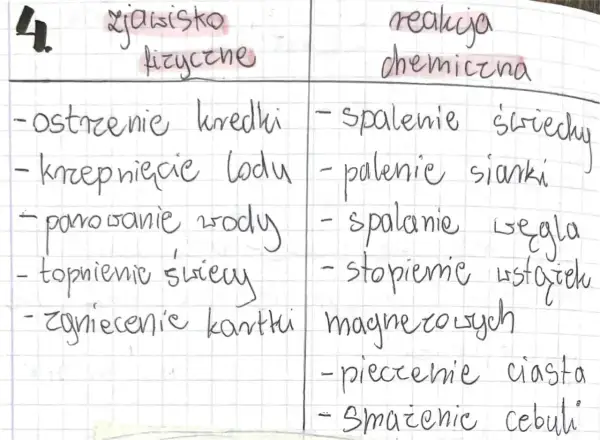 4.
zjawisko
fizyczne
- ostrzenie kredki
- krzepnięcie lodu
- parowanie wody
- topnienie świecy
- zgniecenie kartki
reakcja
chemiczna
- spalenie świeczky
- palenie siarki
- spalanie węgla
- stopienie wstążek
magnezowych
- pieczenie ciasta
- smażenie cebuli